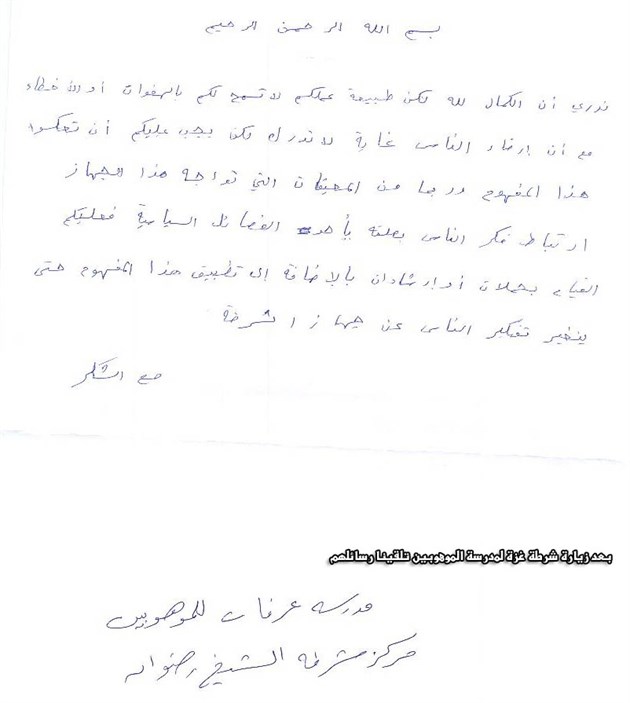 بسم الله الرحمن الرحيم
ندري أن الكمال لله لكن طبيعة عملكم لا تسمح لكم بالهفوات أو الأخطاء
مع أن إرضاء الناس غاية لا تدرك لكن يجب عليكم أن تعكسوا
هذا المفهوم وربما من المعيقات التي تواجه هذا الجهاز
ارتباط فكر الناس بعلاقته بأحد الفصائل السياسية فعليكم
القيام بحملات أو إرشادات بالإضافة إلى تطبيق هذا المفهوم حتى
يتغير تفكير الناس عن جهاز الشرطة
مع الشكر
بعد زيارة شرطة غزة لمدرسة الموهوبين تلقينا رسائلهم
مدرسة عرفات للموهوبين
مركز شرطة الشيخ رضوان